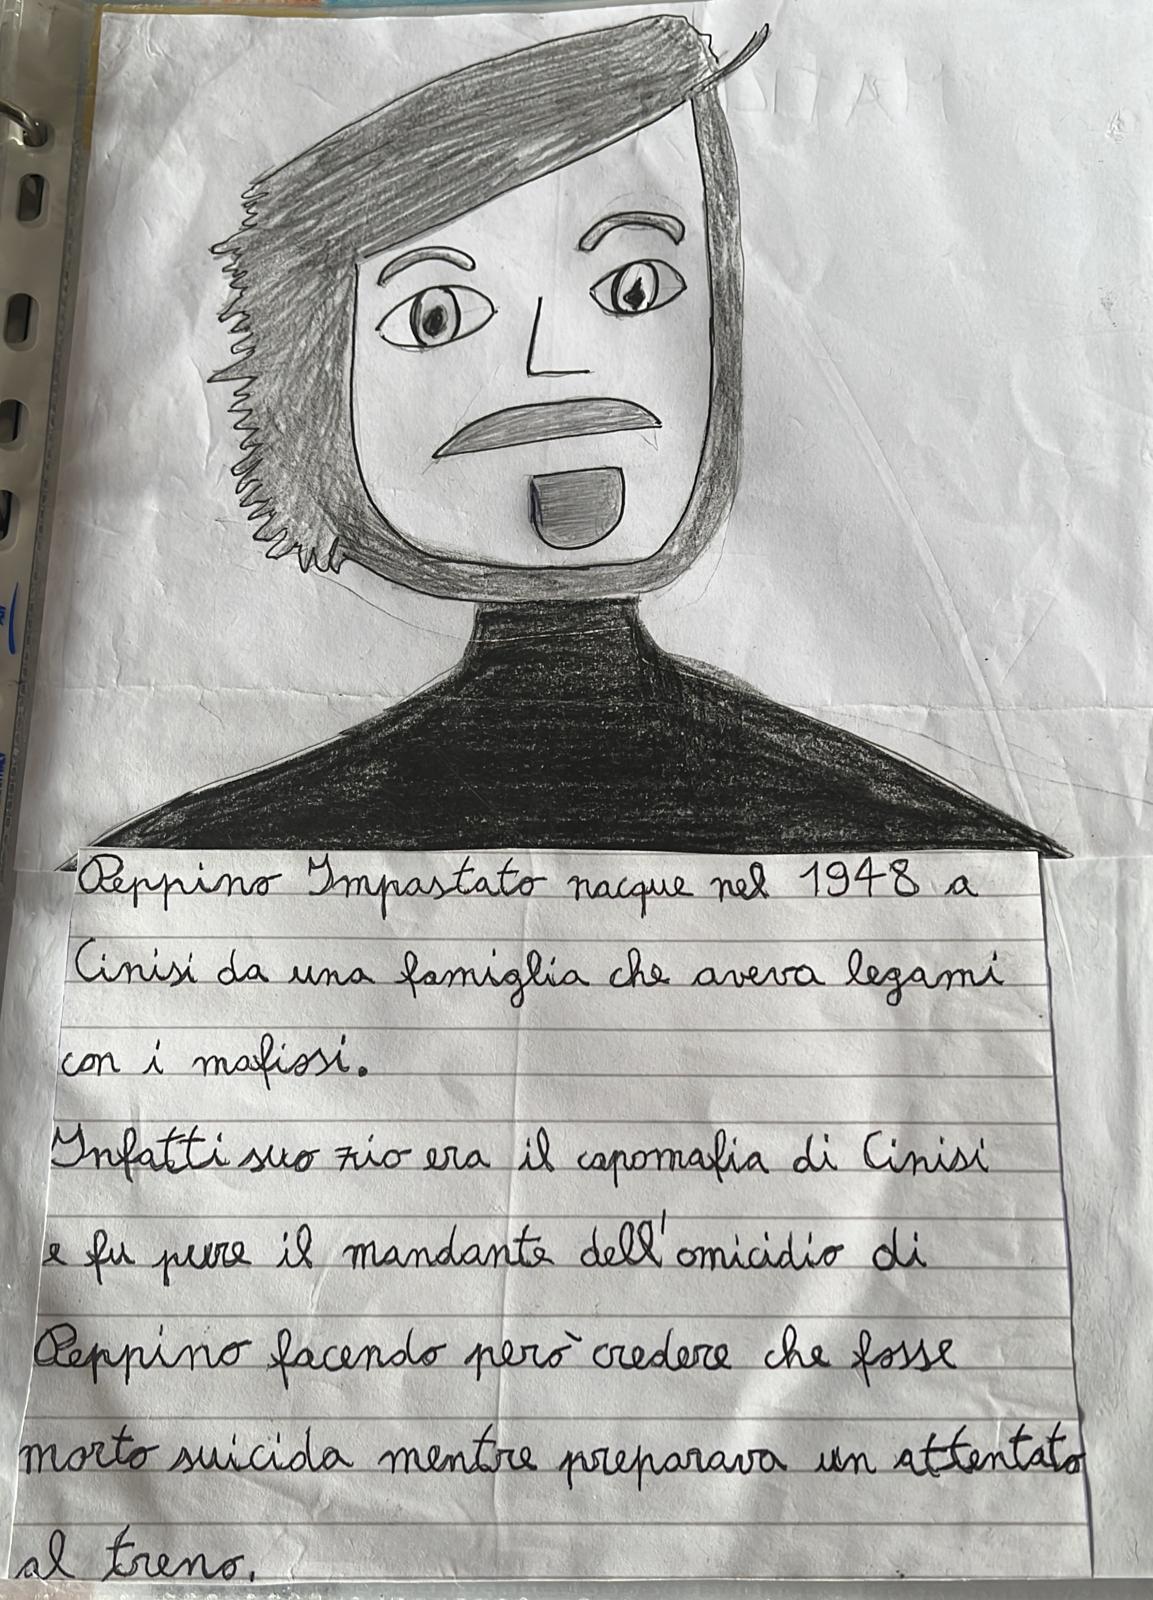 Peppino Impastato nacque nel 1948 a
Cinisi da una famiglia che aveva legami
con i mafiosi.
Infatti suo zio era il capomafia di Cinisi
e fu pure il mandante dell'omicidio di
Peppino facendo però credere che fosse
morto suicida mentre preparava un attentato
al treno.